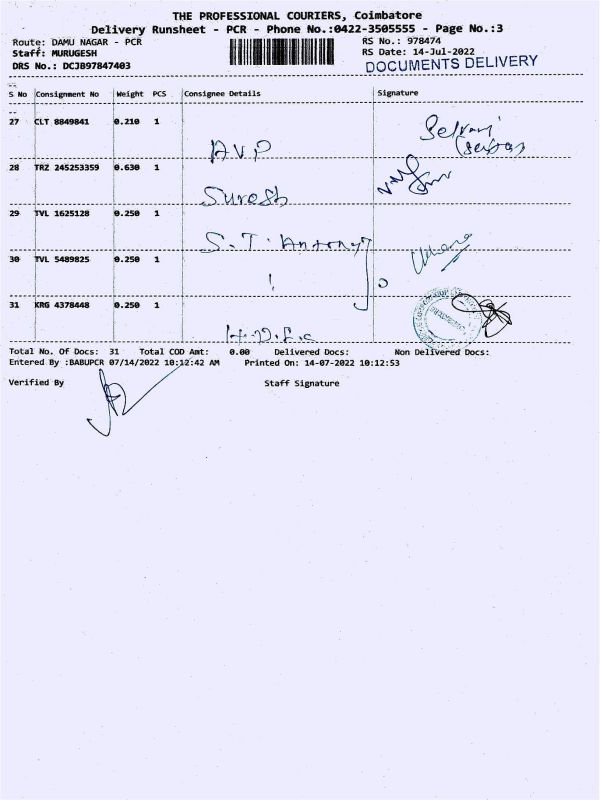 THE PROFESSIONAL COURIERS, Coimbatore
Delivery Runsheet - PCR - Phone No.:0422-3505555 - Page No.:3
Route: DAMU NAGAR - PCR
RS No.: 978474
Staff: MURUGESH
RS Date: 14-Jul-2022
DRS No.: DCJB97847403
DOCUMENTS DELIVERY
S No Consignment No Weight PCS Consignee Details Signature
27 CLT 8849841 0.210 1
AVP
28 TRZ 245253359 0.630 1
Suresh
29 TVL 1625128 0.250 1
S.T. Antony
30 TVL 5489825 0.250 1
31 KRG 4378448 0.250 1
Total No. Of Docs: 31 Total COD Amt: 0.00 Delivered Docs: Non Delivered Docs:
Entered By :BABUPCR 07/14/2022 10:12:42 AM Printed On: 14-07-2022 10:12:53
Verified By Staff Signature